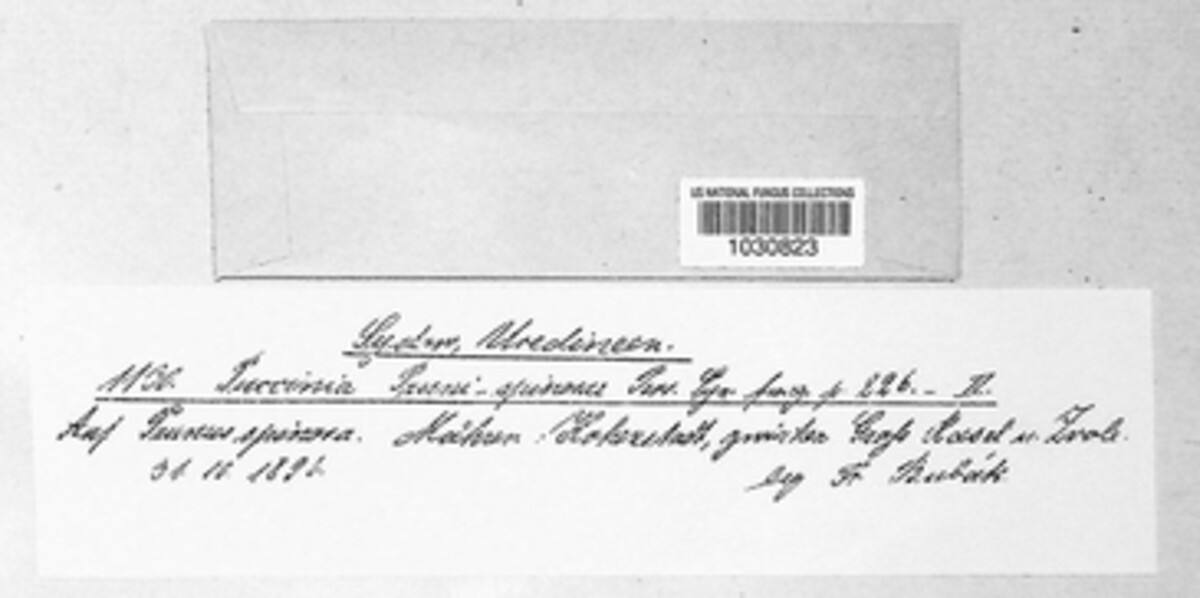 US NATIONAL FUNGUS COLLECTIONS
1030823
Sydow, Uredineen.
Puccinia Pruni-spinosae Pers. Syn. fung. p. 226. - II.
Auf Prunus spinosa. Mähren: Hohenstadt, zwischen Groß Rasel u. Zvole.
leg Fr. Bubák